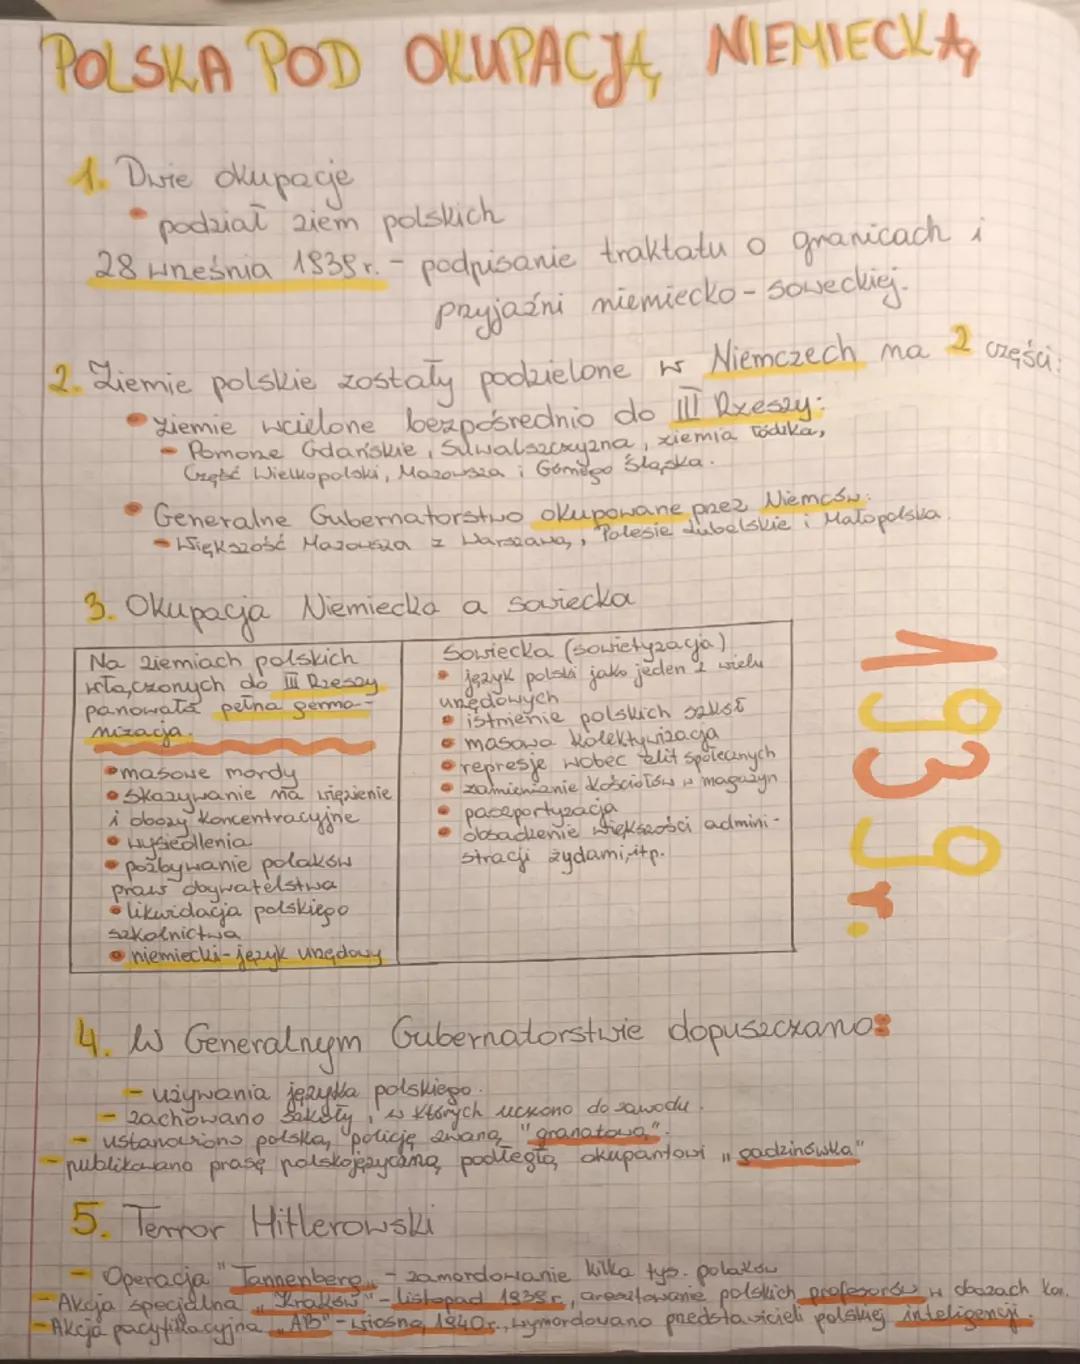 POLSKA POD OKUPACJĄ NIEMIECKĄ
1. Dwie okupacje
• podział ziem polskich
28 września 1939r. - podpisanie traktatu o granicach i
przyjaźni niemiecko-soweckiej.
2. Ziemie polskie zostały podzielone w Niemczech na 2 części:
• ziemie wcielone bezpośrednio do III Rzeszy:
- Pomorze Gdańskie, Suwalszczyzna, ziemia łódzka,
Część Wielkopolski, Mazowsza i Górnego Śląska.
• Generalne Gubernatorstwo okupowane przez Niemców:
- Większość Mazowsza z Warszawą, Polesie Lubelskie i Małopolska.
3. Okupacja Niemiecka a sowiecka
Na ziemiach polskich
włączonych do III Rzeszy
panowała pełna germa-
nizacja.
• masowe mordy
• skazywanie na więzienie
i obozy koncentracyjne
• wysiedlenia
• pozbywanie polaków
praw obywatelstwa
• likwidacja polskiego
szkolnictwa
• niemiecki-język urzędowy
Sowiecka (sowietyzacja)
• język polski jako jeden z wielu
urzędowych
• istnienie polskich szkół
• masowa kolektywizacja
• represje wobec elit społecznych
• zamienianie kościołów w magazyn
• paszportyzacja
• obsadzenie większości admini-
stracji żydami, itp.
1939r.
4. W Generalnym Gubernatorstwie dopuszczano:
- używania języka polskiego.
- zachowano szkoły, w których uczono do zawodu.
- ustanowiono polską policję zwaną "granatową".
- publikowano prasę polskojęzyczną podległą okupantowi "gadzinówka"
5. Terror Hitlerowski
- Operacja "Tannenberg" - zamordowanie kilka tys. polaków
- Akcja specjalna "Kraków" - listopad 1939r., aresztowanie polskich profesorów w obozach kon.
- Akcja pacyfikacyjna "AB" - wiosna 1940r., wymordowano przedstawicieli polskiej inteligencji.